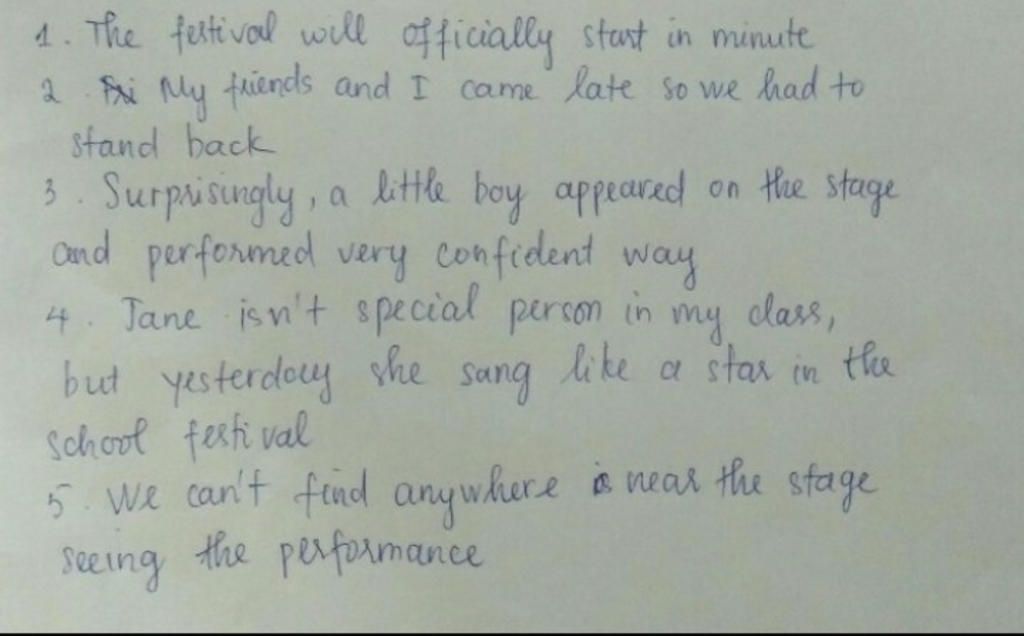 1. The festival will officially start in minute
2. My friends and I came late so we had to
stand back
3. Surprisingly, a little boy appeared on the stage
and performed very confident way
4. Jane isn't special person in my class,
but yesterday she sang like a star in the
school festival
5. We can't find anywhere near the stage
seeing the performance